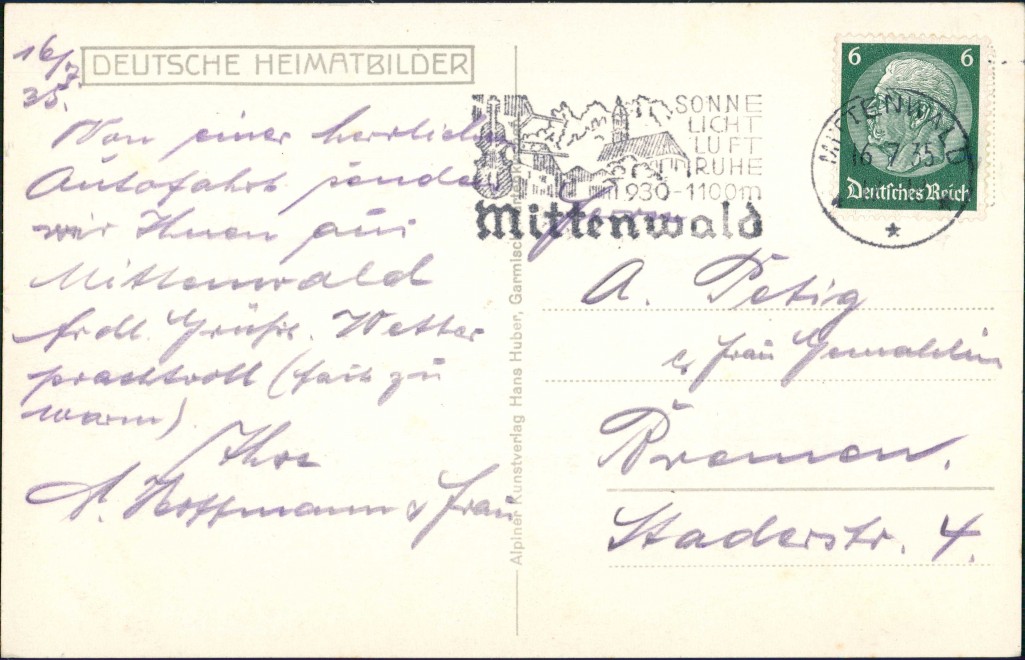 16/7
35.
DEUTSCHE HEIMATBILDER
Von einer herrlichen
Autofahrt senden
wir Ihnen aus
Mittenwald
frdl. Grüße. Wetter
prachtvoll (fast zu
warm)
Ihre
Hoffmann u Frau
Alpiner Kunstverlag Hans Huber, Garmisch
SONNE
LICHT
LUFT
RUHE
930-1100m
Mittenwald
6 6
Deutsches Reich
MITTENWALD
16.7.35
Herrn
A. Petig
u. Frau Gemahlin
Bremen.
Staderstr. 4.